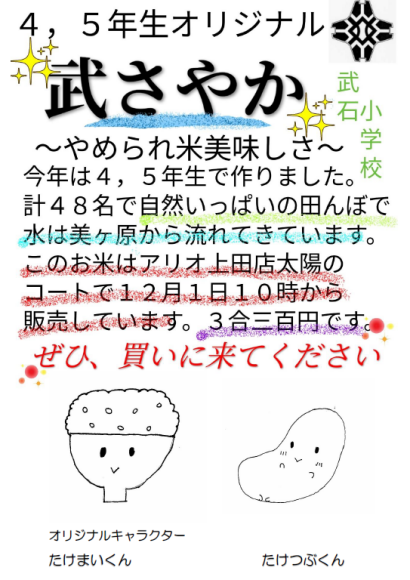 ４，５年生オリジナル
武さやか
武石小学校
～やめられ米美味しさ～
今年は４，５年生で作りました。
計４８名で自然いっぱいの田んぼで
水は美ヶ原から流れてきています。
このお米はアリオ上田店太陽の
コートで１２月１日１０時から
販売しています。３合三百円です。
ぜひ、買いに来てください
オリジナルキャラクター
たけまいくん
たけつぶくん